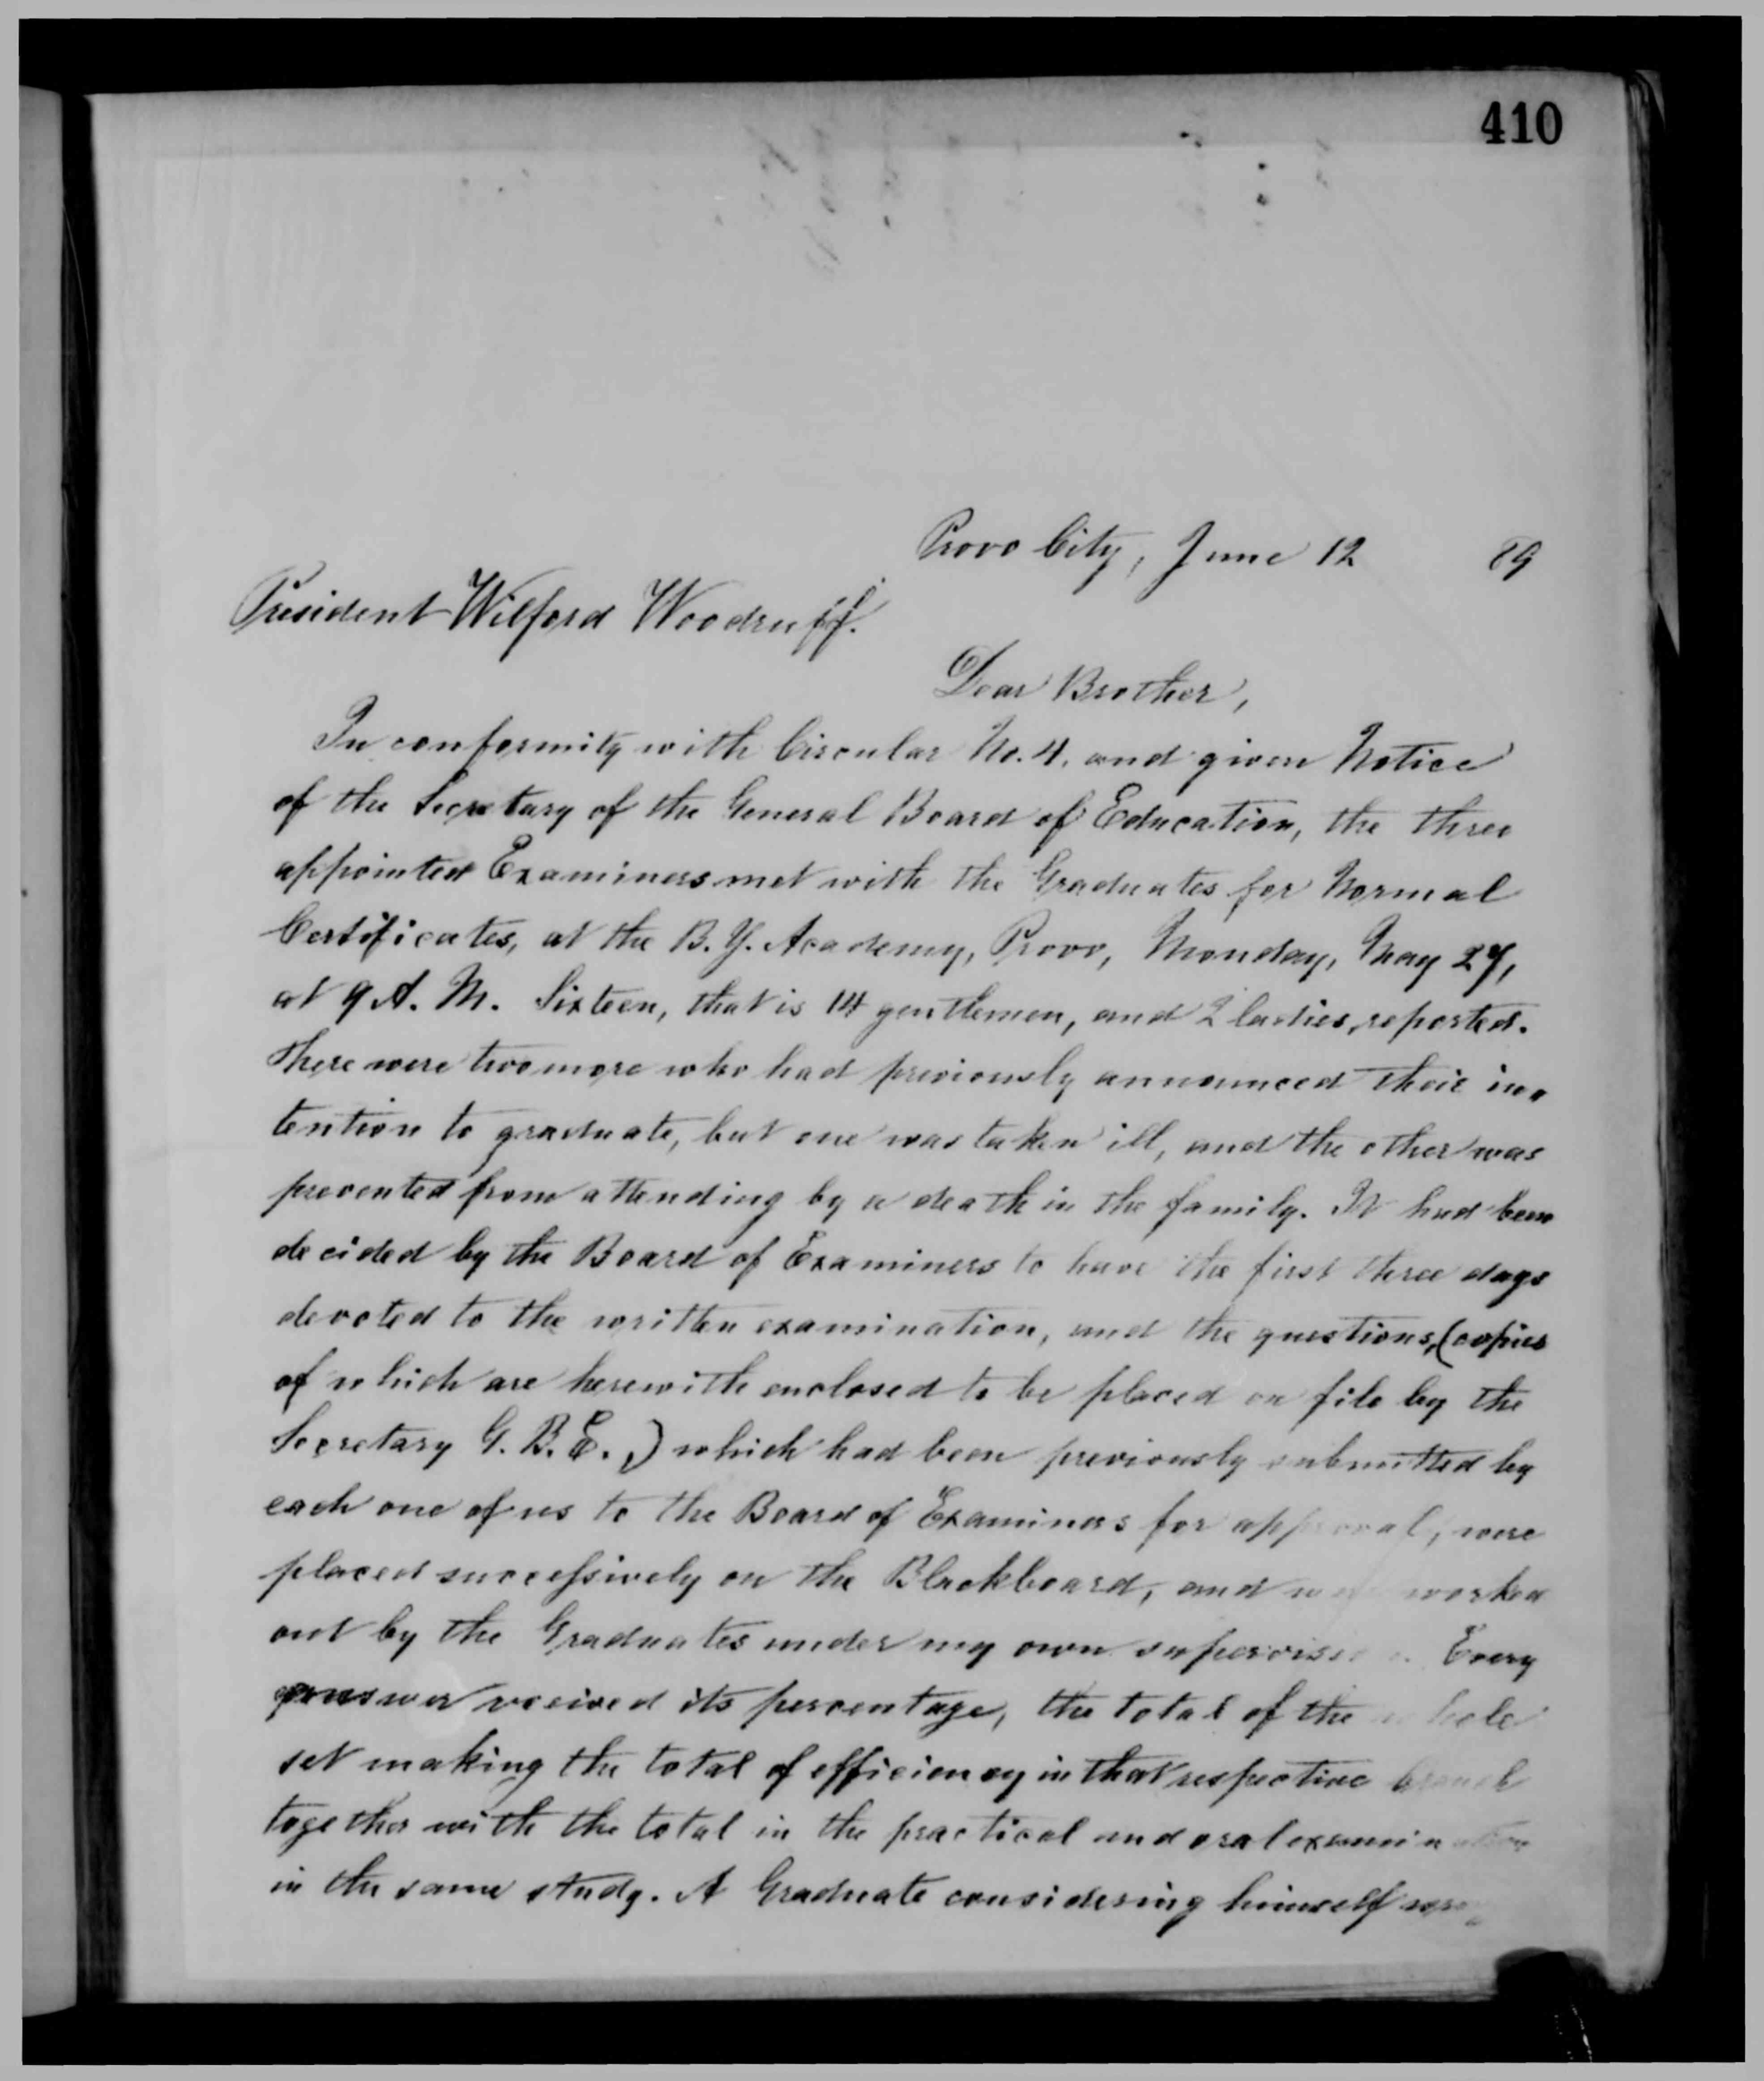 410
Provo City, June 12 89
President Wilford Woodruff.
Dear Brother,
In conformity with Circular No. 4. and given Notice
of the Secretary of the General Board of Education, the three
appointed Examiners met with the Graduates for Normal
Certificates, at the B. Y. Academy, Provo, Monday, May 27,
at 9 A. M. Sixteen, that is 14 gentlemen, and 2 ladies, reported.
There were two more who had previously announced their in-
tention to graduate, but one was taken ill, and the other was
prevented from attending by a death in the family. It had been
decided by the Board of Examiners to have the first three days
devoted to the written examination, and the questions, (copies
of which are herewith enclosed to be placed on file by the
Secretary G. B. E.) which had been previously submitted by
each one of us to the Board of Examiners for approval, were
placed successively on the Blackboard, and were worked
out by the Graduates under my own supervision. Every
answer received its percentage, the total of the whole
set making the total of efficiency in that respective branch
together with the total in the practical and oral examination
in the same study. A Graduate considering himself